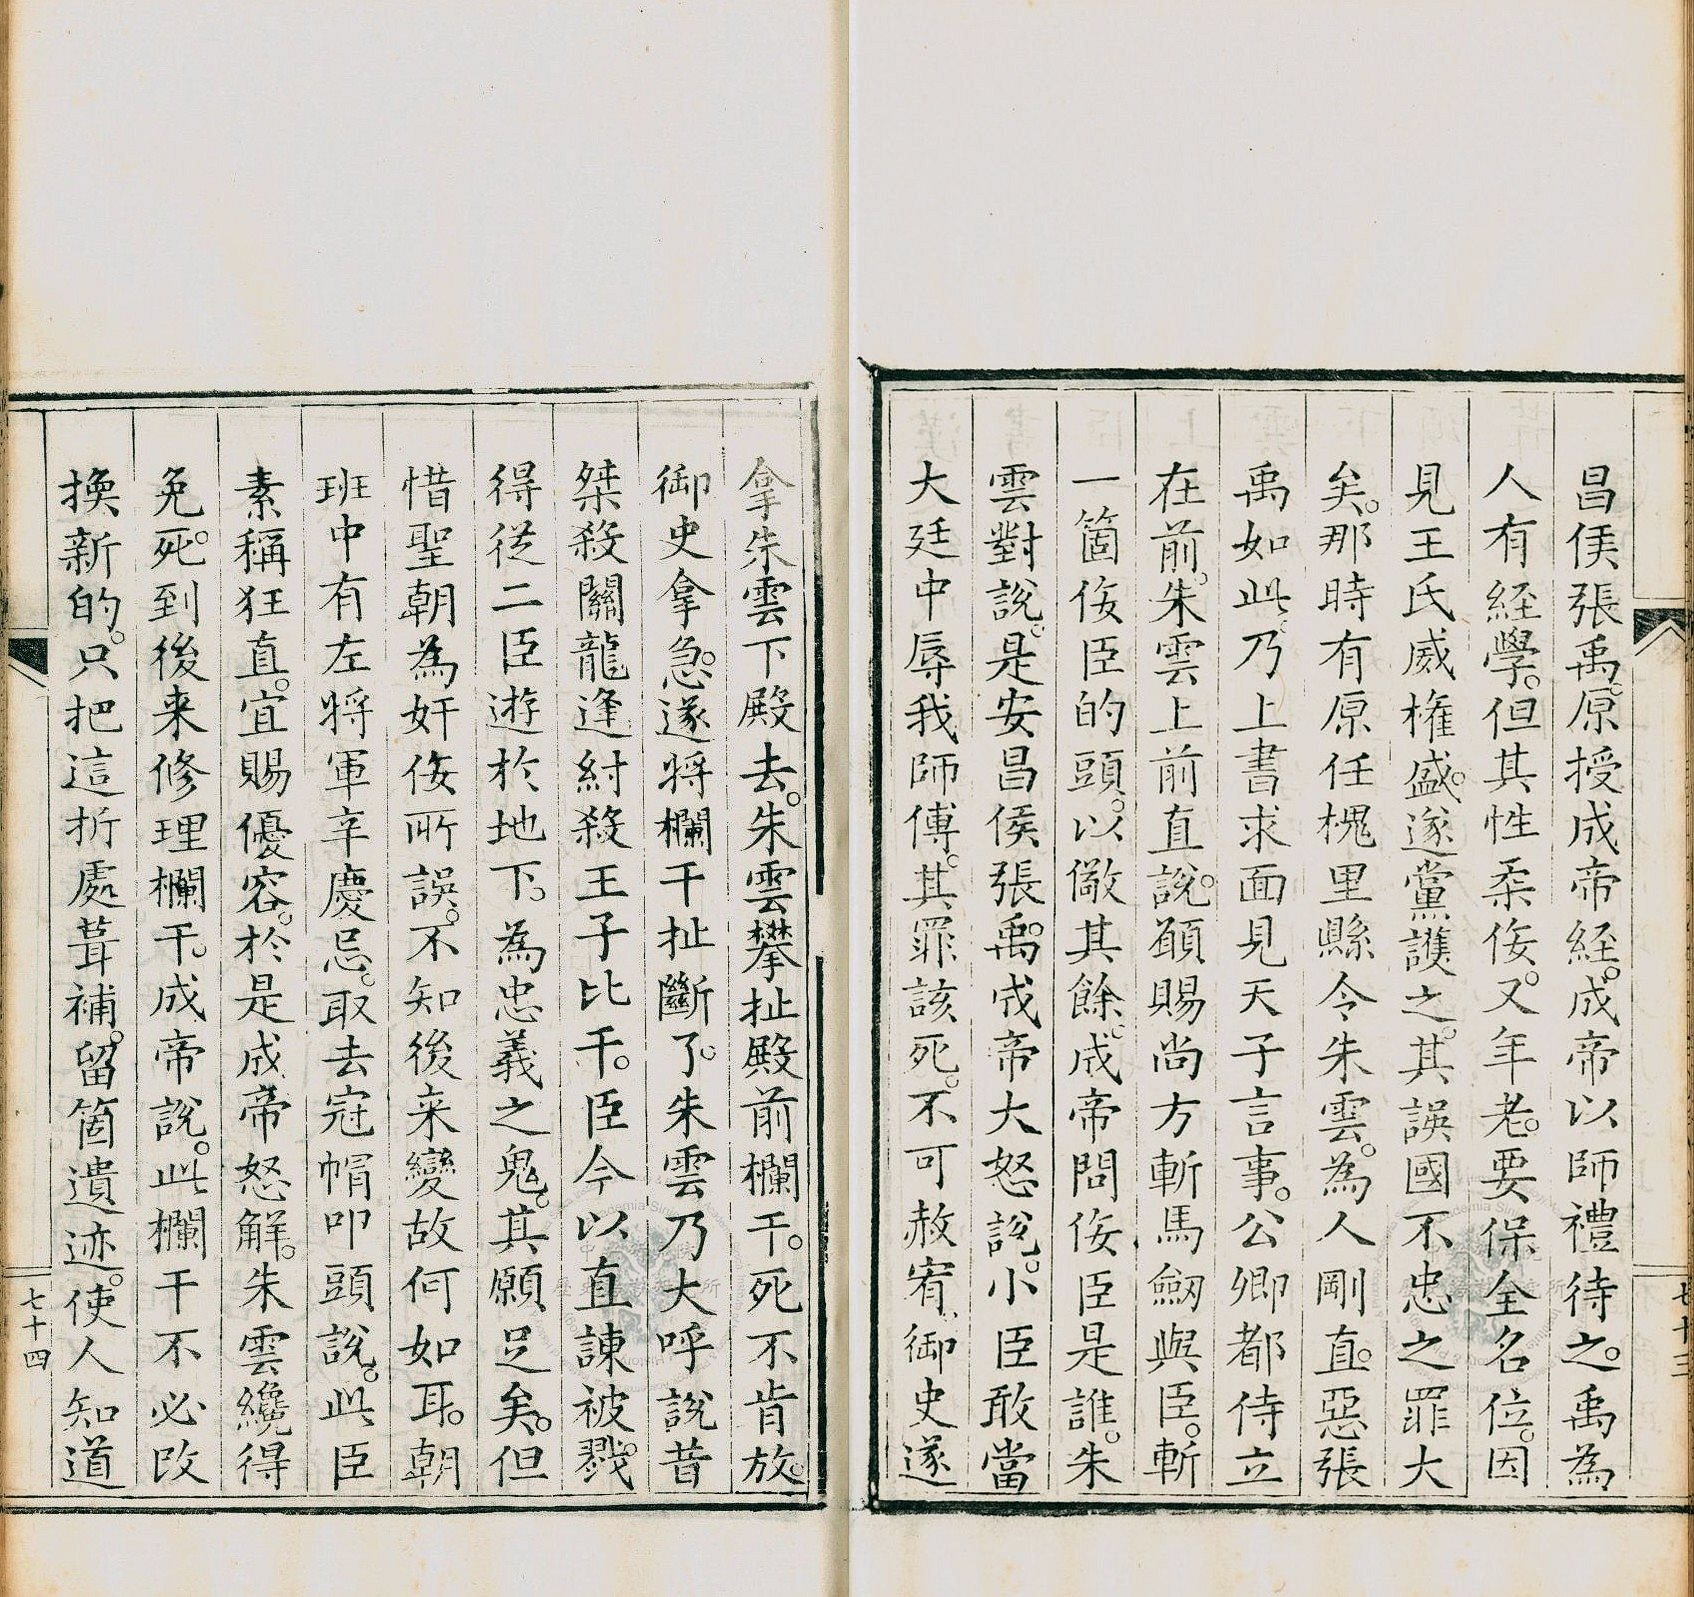 昌侯張禹。原授成帝經。成帝以師禮待之。禹為
人有經學。但其性柔佞。又年老。要保全名位。因
見王氏威權盛。遂黨護之。其誤國不忠之罪大
矣。那時有原任槐里縣令朱雲。為人剛直。惡張
禹如此。乃上書求面見天子言事。公卿都侍立
在前。朱雲上前直說。願賜尚方斬馬劒與臣。斬
一箇佞臣的頭。以儆其餘。成帝問佞臣是誰。朱
雲對說。是安昌侯張禹。成帝大怒說。小臣敢當
大廷中辱我師傅。其罪該死。不可赦宥。御史遂
七十三
拿朱雲下殿去。朱雲攀扯殿前欄干。死不肯放。
御史拿急。遂將欄干扯斷了。朱雲乃大呼說昔
桀殺關龍逢。紂殺王子比干。臣今以直諫被戮。
得從二臣遊於地下。為忠義之鬼。其願足矣。但
惜聖朝為奸佞所誤。不知後来變故何如耳。朝
班中有左將軍辛慶忌。取去冠帽叩頭說。此臣
素稱狂直。宜賜優容。於是成帝怒解。朱雲纔得
免死。到後来修理欄干。成帝說。此欄干不必改
換新的。只把這折處葺補。留箇遺迹。使人知道
七十四